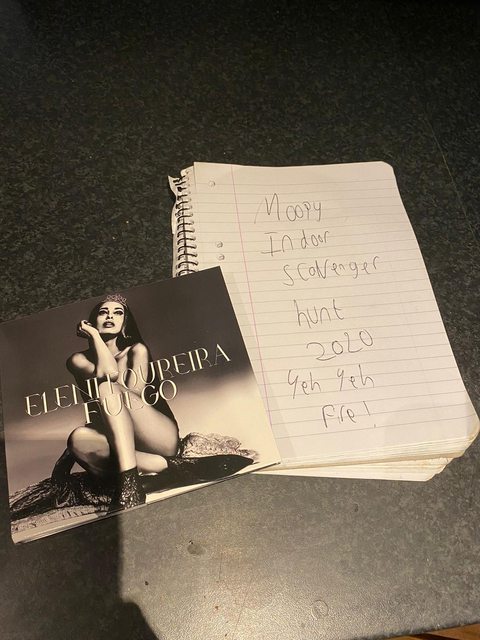 ELENI FOUREIRA
FUEGO
Moopy
Indoor
Scavenger
hunt
2020
Yeh Yeh
Fire!